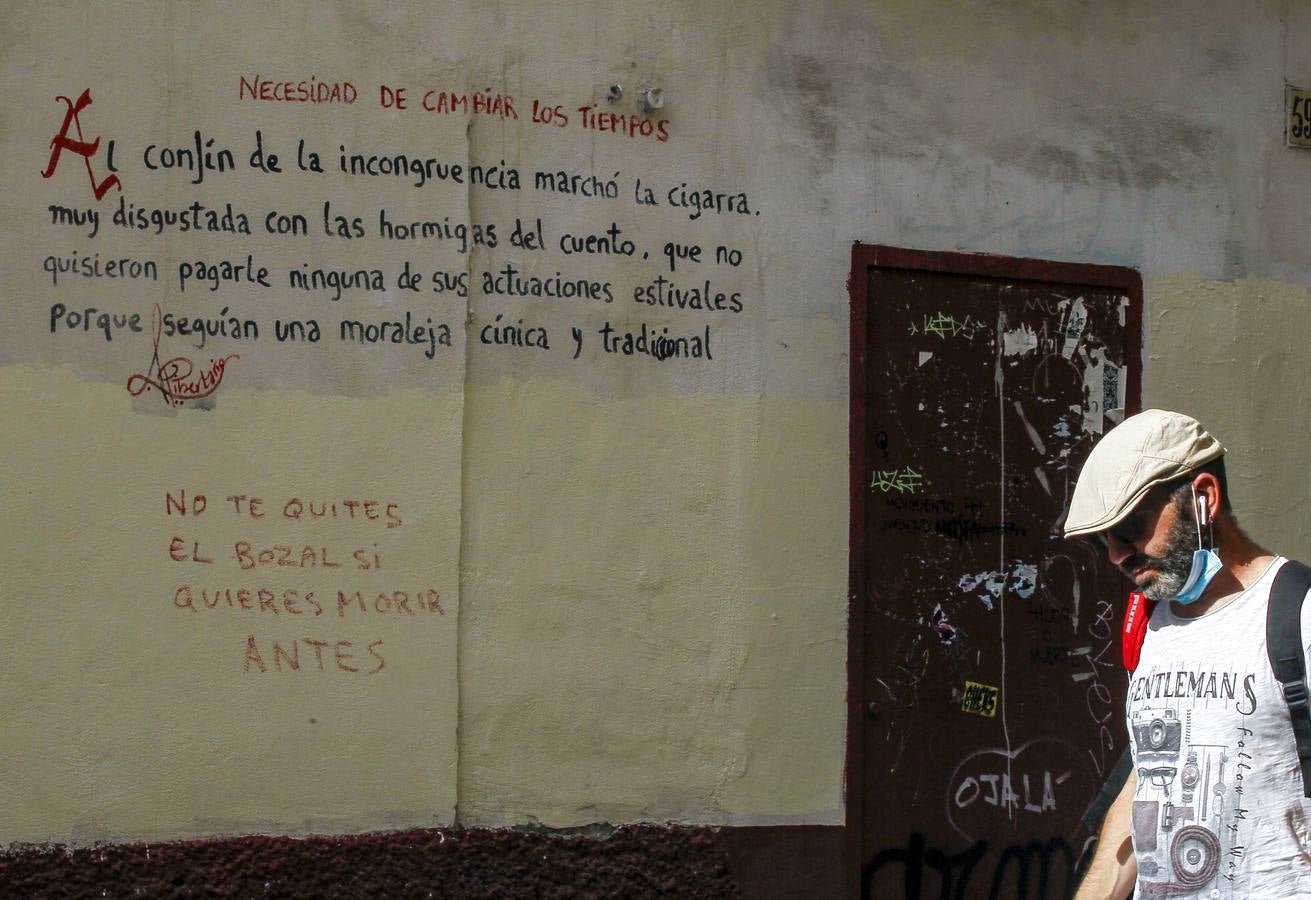 NECESiDAD DE CAMBiAR LOS TiEMPOS
Al confín de la incongruencia marchó la cigarra.
muy disgustada con las hormigas del cuento, que no
quisieron pagarle ninguna de sus actuaciones estivales
Porque seguían una moraleja cínica y tradicional
NO TE QUITES
EL BOZAL Si
QUIERES MORIR
ANTES
59
MOVIMIENTO
JUVENTUD
O
OJALÁ
GENTLEMANS
Follow My Way